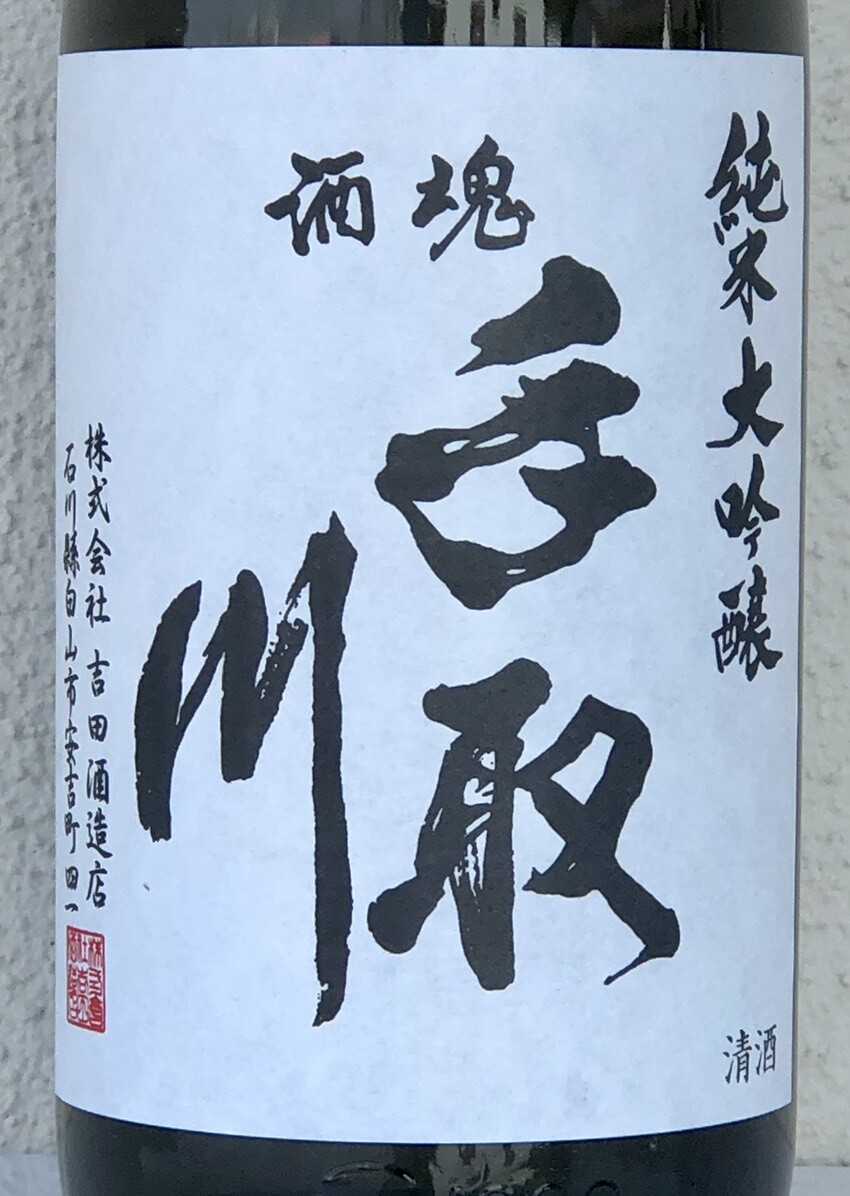 純米大吟醸
酒魂
手取
川
株式会社 吉田酒造店
石川縣白山市安吉町四一
清酒